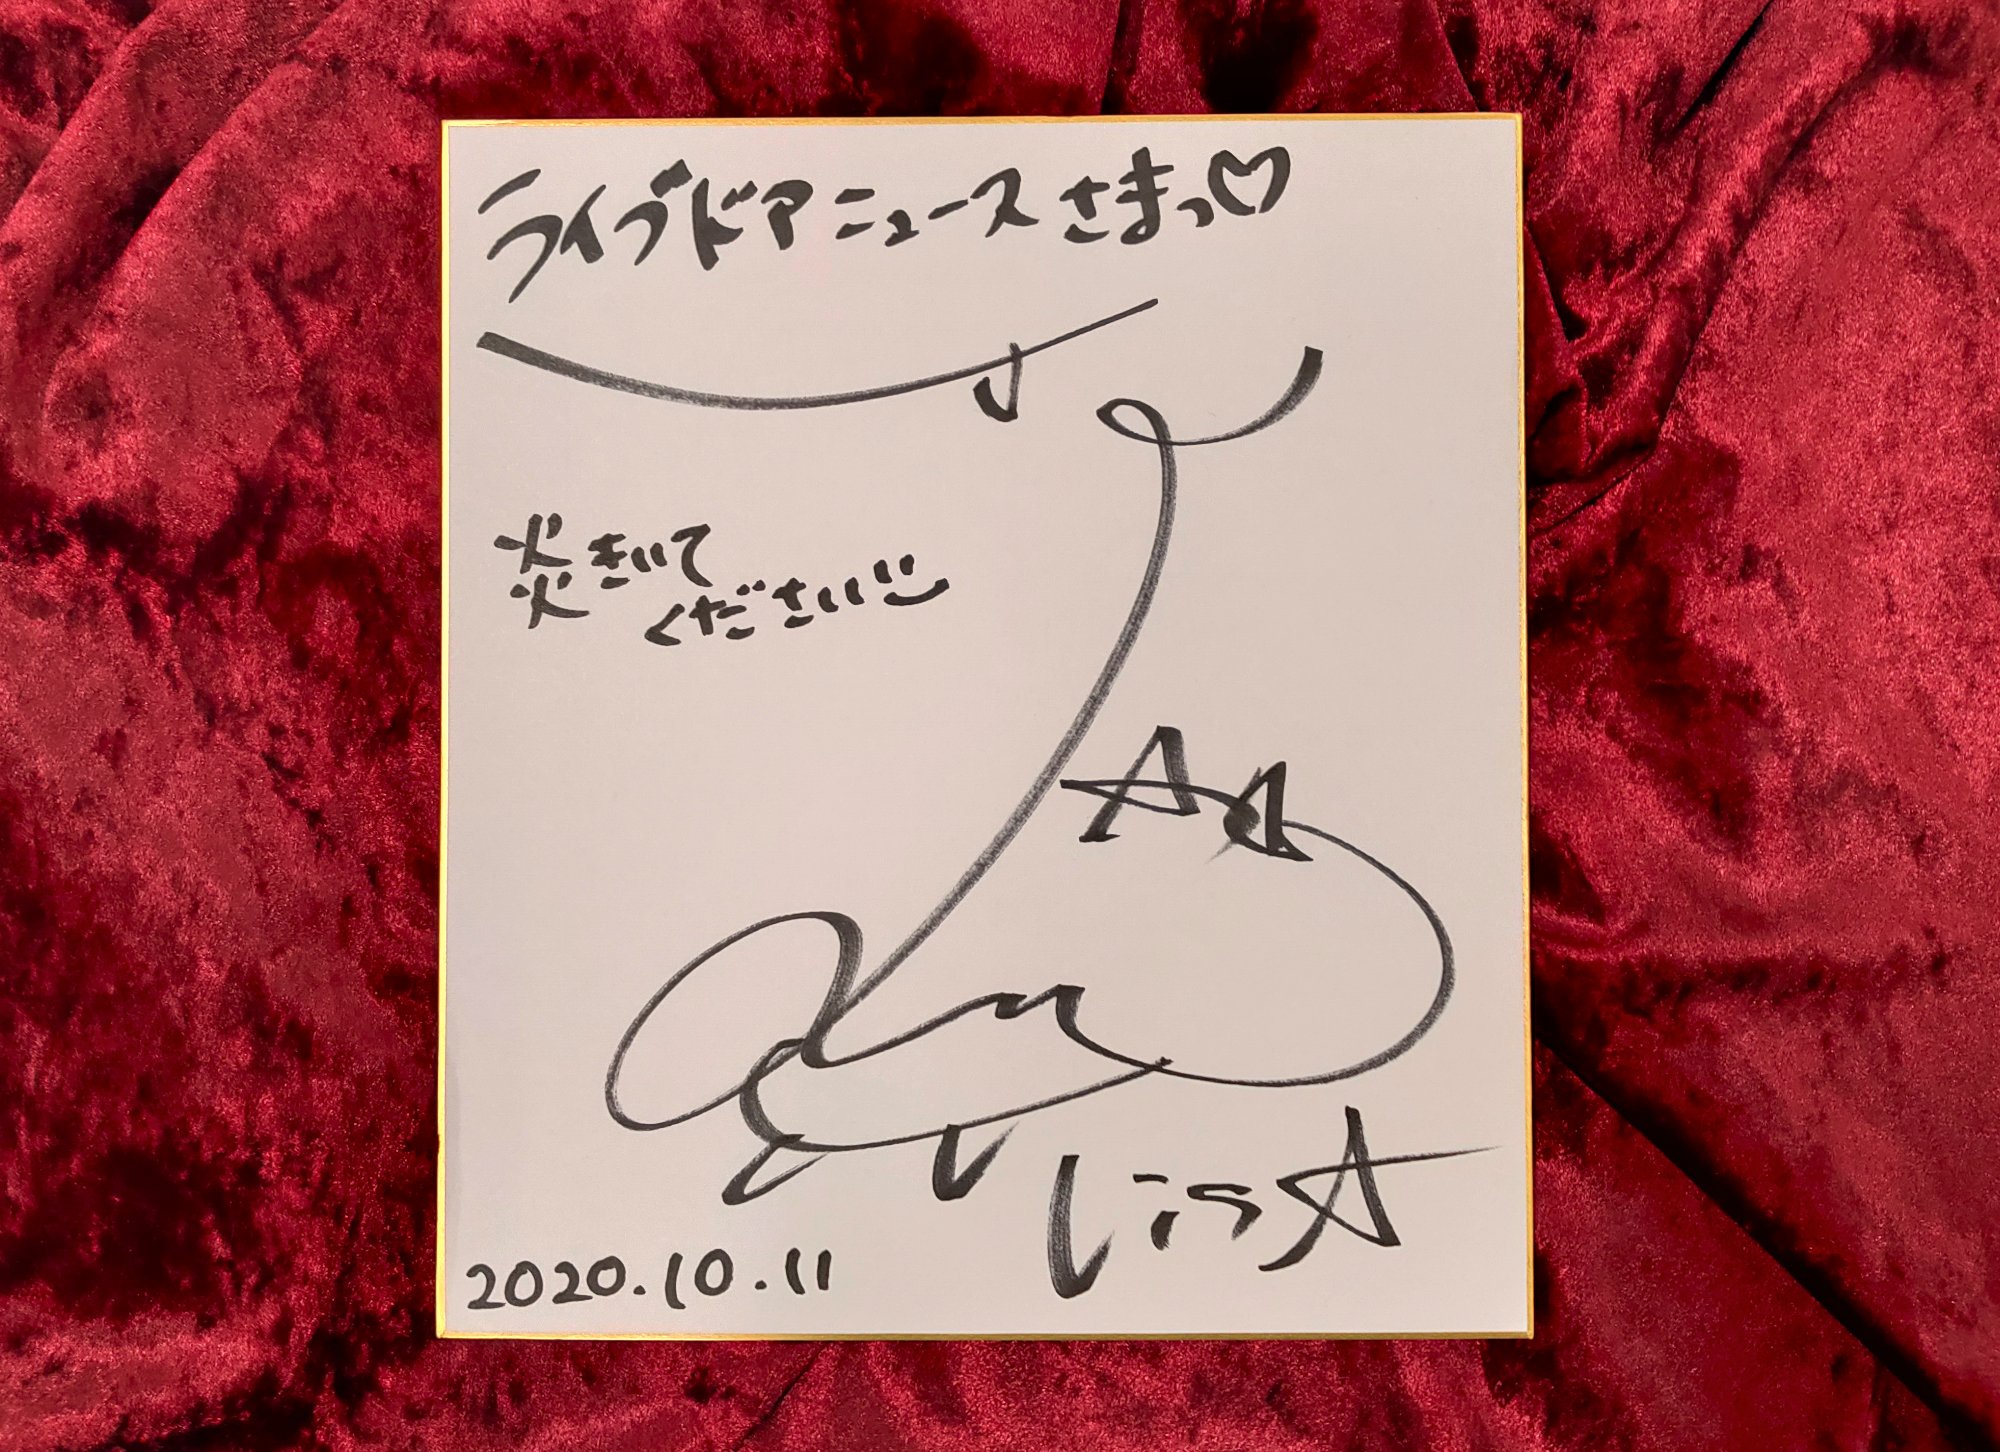 ライブドアニュースさまっ♡
炎きいて
ください
LiSA
2020.10.11